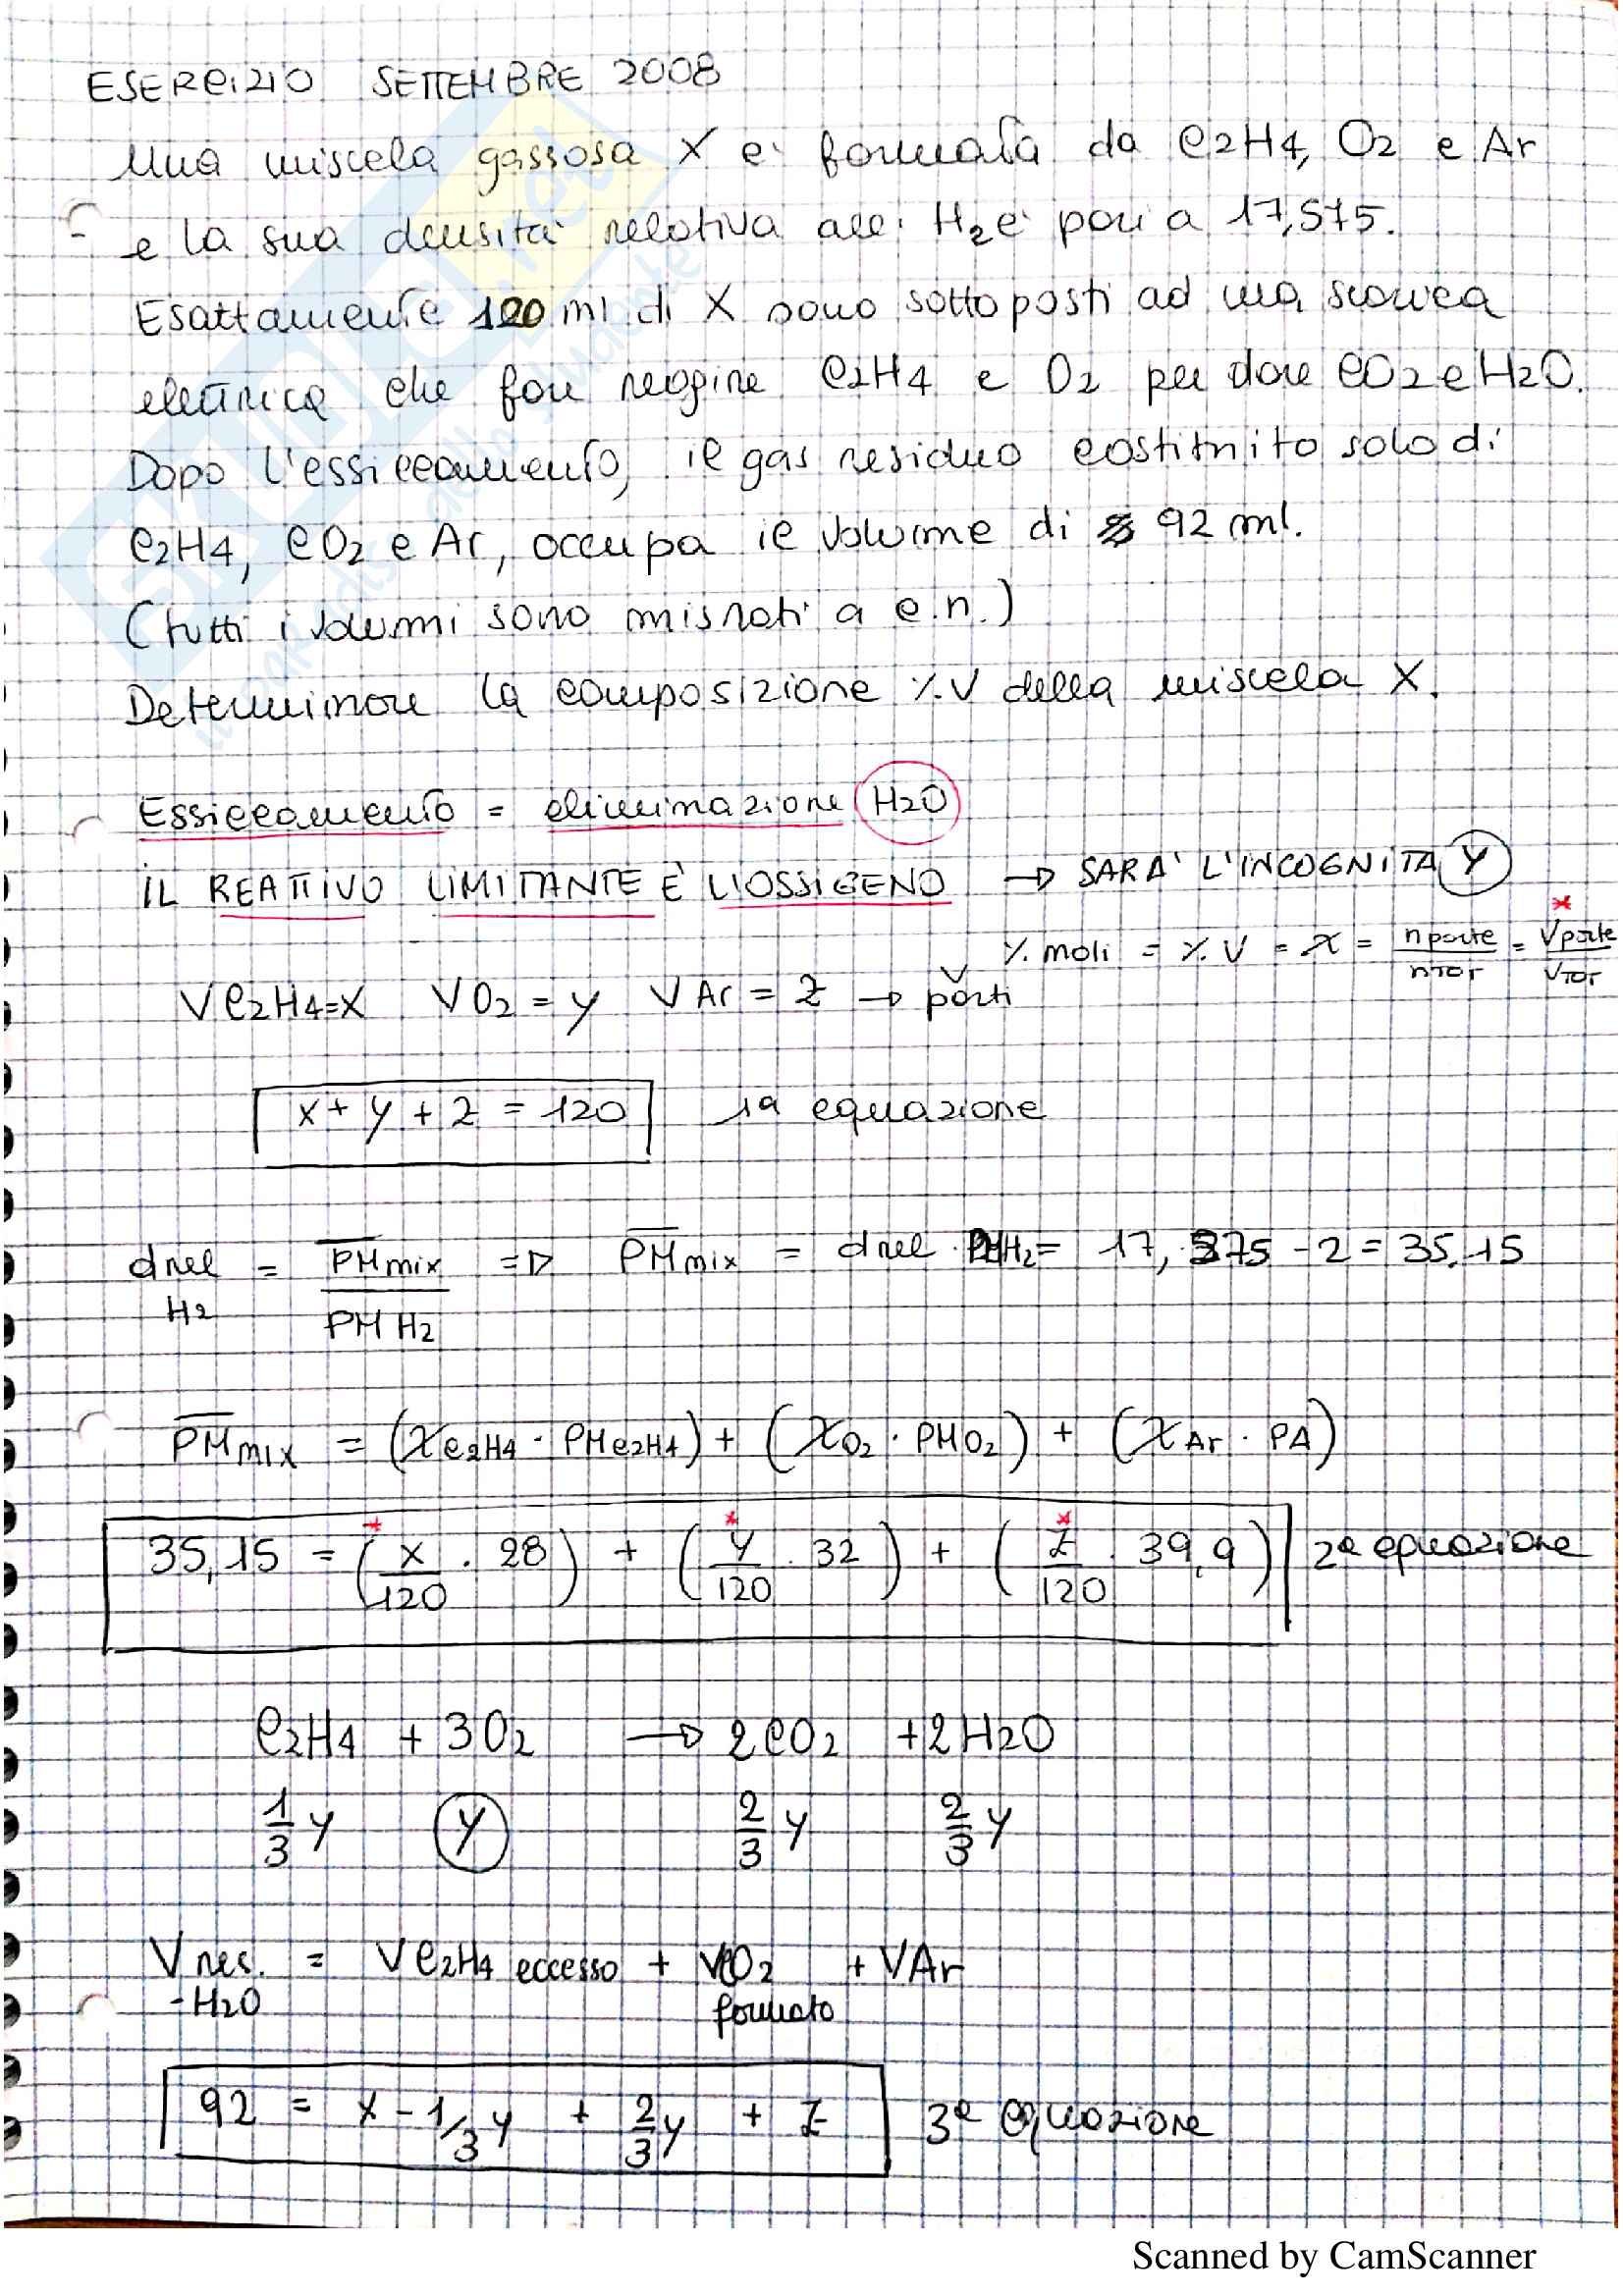 ESERCIZIO SETTEMBRE 2008
Una miscela gassosa X e' formata da C2H4, O2 e Ar
e la sua densita' relativa all' H2 e' pari a 17,575.
Esattamente 120 ml di X sono sottoposti ad una scarica
elettrica che fare reagire C2H4 e O2 per dare CO2 e H2O.
Dopo l'essiccamento, il gas residuo costituito solo di
C2H4, CO2 e Ar, occupa il volume di 92 ml.
(tutti i volumi sono misurati a c.n.)
Determinare la composizione %V della miscela X.
Essiccamento = eliminazione H2O
IL REATTIVO LIMITANTE È L'OSSIGENO → SARA' L'INCOGNITA Y
% moli = % V = χ = n parte / n TOT = V parte / V TOT *
V C2H4 = X V O2 = y V Ar = Z → V parti
x + y + z = 120 1a equazione
d rel H2 = PM mix / PM H2 => PM mix = d rel · PM H2 = 17,575 - 2 = 35,15
PM mix = (χ C2H4 · PM C2H4) + (χ O2 · PM O2) + (χ Ar · PA)
35,15 = (x/120 * · 28) + (y/120 * · 32) + (z/120 * · 39,9) 2a equazione
C2H4 + 3O2 → 2CO2 + 2H2O
1/3 y y 2/3 y 2/3 y
V res. - H2O = V C2H4 eccesso + V CO2 formato + V Ar
92 = x - 1/3 y + 2/3 y + z 3a equazione
SKUOLA.net
il paradiso dello studente
Scanned by CamScanner